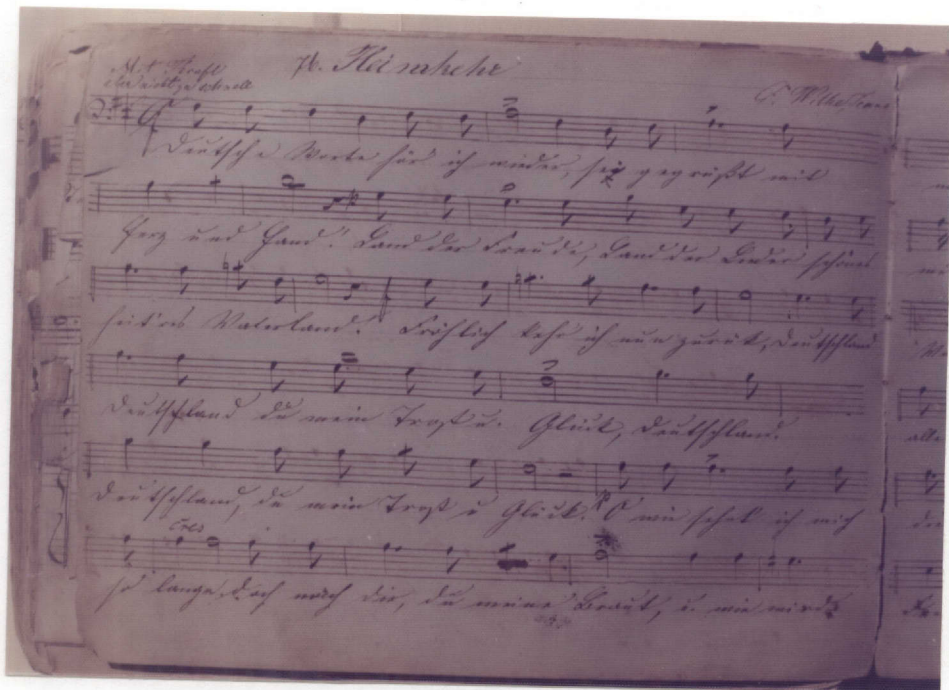 M. t. Kraft 76. Heimkehr
Deutsche Worte hör' ich wieder, sei gegrüßt mit
Herz und Hand! Land der Freude, Land der Lieder schönes
heit'res Vaterland! Fröhlich kehr ich nun zurück, Deutschland
Deutschland du mein Trost u. Glück, Deutschland.
Deutschland, du mein Trost u Glück! O wie sehnt ich mich
cres
so lange doch nach dir, du meine Braut, u. wie wird